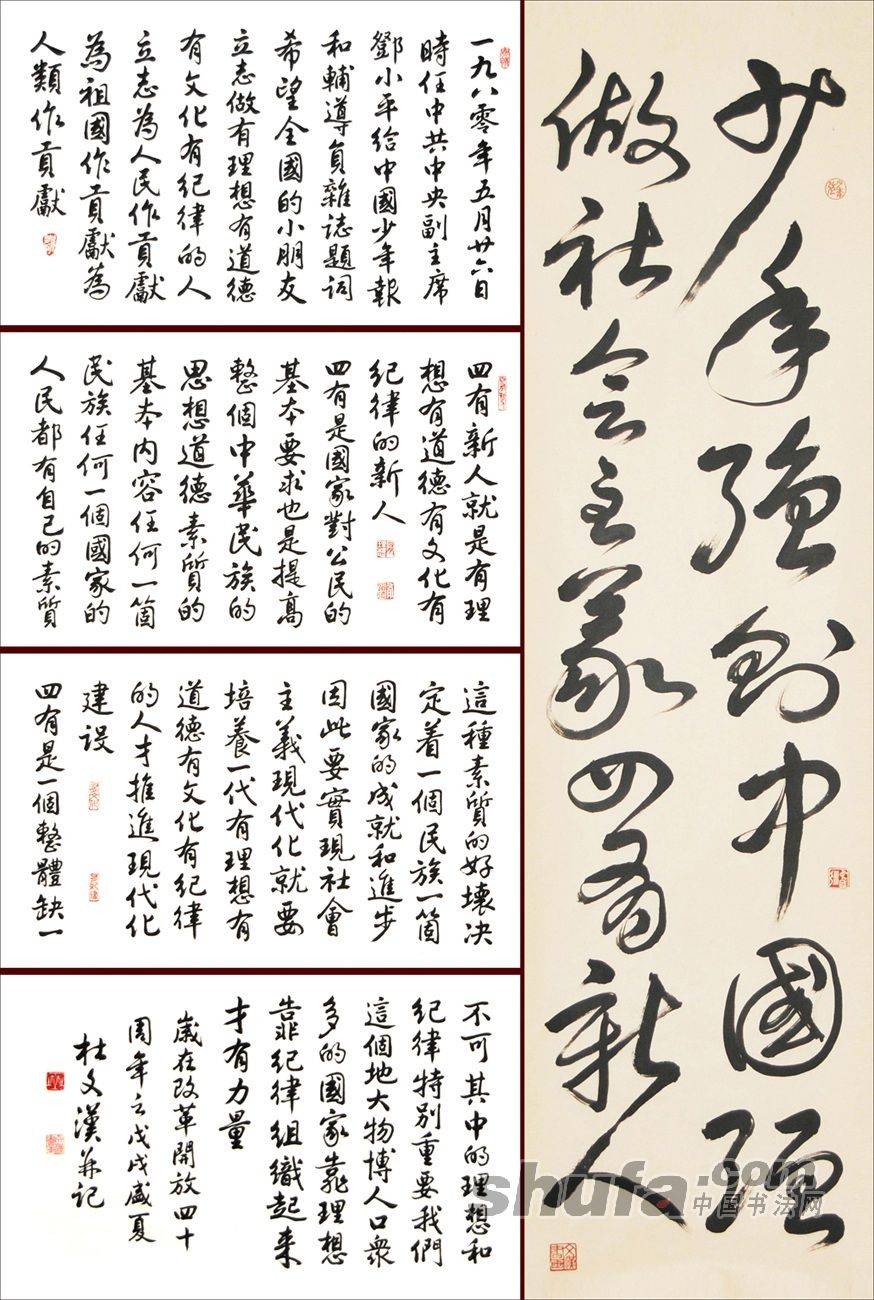 少年强则中國强
做社会主義四有新人
一九八零年五月廿六日
時任中共中央副主席
鄧小平给中國少年報
和輔導員雜誌題词
希望全國的小朋友
立志做有理想有道德
有文化有纪律的人
立志為人民作貢獻
為祖國作貢獻為
人類作貢獻
四有新人就是有理
想有道德有文化有
纪律的新人
四有是國家對公民的
基本要求也是提高
整個中華民族的
思想道德素質的
基本内容任何一箇
民族任何一個國家的
人民都有自己的素質
這種素質的好壞决
定着一個民族一箇
國家的成就和進步
因此要實現社會
主義現代化就要
培養一代有理想有
道德有文化有纪律
的人才推進現代化
建设
四有是一個整體缺一
不可其中的理想和
纪律特别重要我們
這個地大物博人口衆
多的國家靠理想
靠纪律組織起來
才有力量
歲在改革開放四十
周年之戊戌盛夏
杜文漢并记
shufa.com
中国书法网